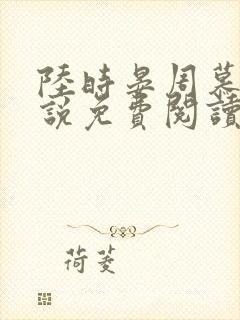 陸時晏周慕
說免費閱讀
荷菱